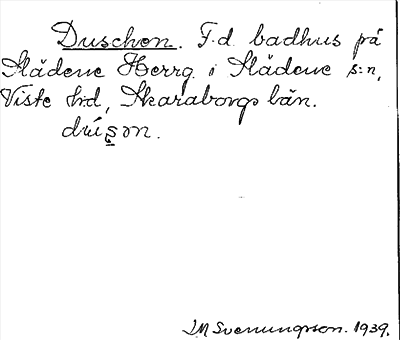 Duschen. F.d. badhus på
Slädene Herrg. i Slädene s:n,
Viste hd, Skaraborgs län.
dúʂɔn.
JM Svenungsson. 1939.